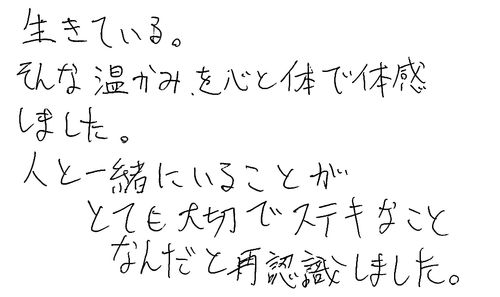 生きている。
そんな温かみを心と体で体感
しました。
人と一緒にいることが
とても大切でステキなこと
なんだと再認識しました。